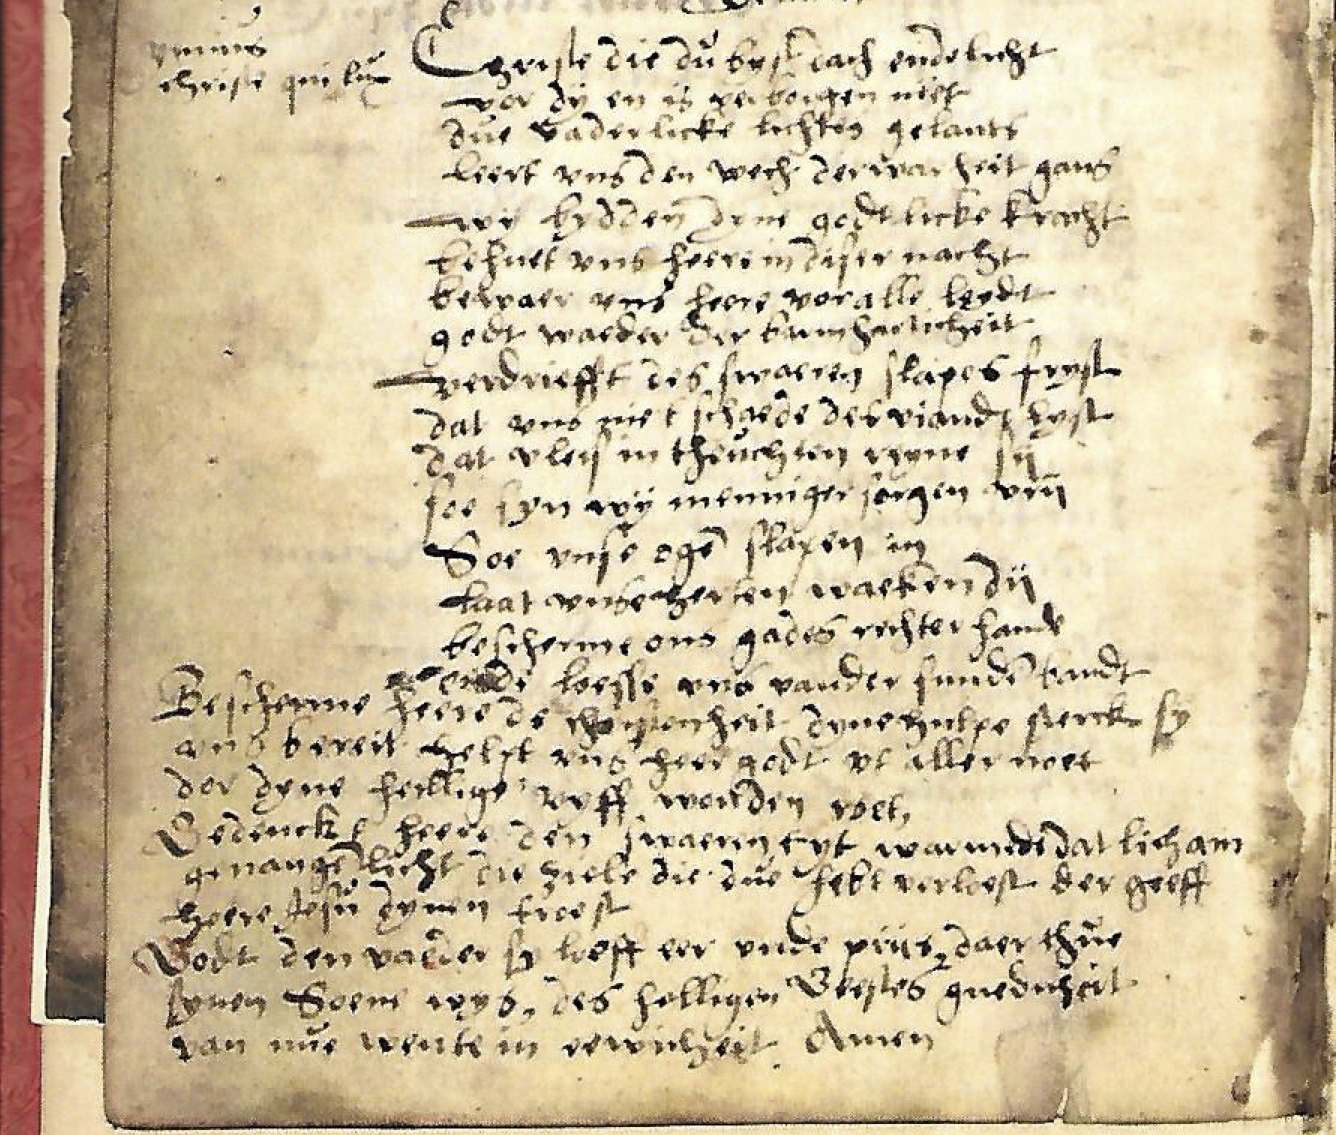 ymnus
christe qui lux
Christe die du byst dach ende licht
vor dy en is verborgen niet
due vaderlicke lichtes gelants
leert vns den wech der warheit gans
wy bydden dyne godtlicke kracht
behuet vns heere in diser nacht
bewaer vns heere vor alle leydt
godt vaeder der barmharticheit
verdriefft des swaeren slapes fryst
dat vns niet schaede des viandts lyst
dat vleis in theuchten reyne sij
soe syn wy menniger sorgen vrij
Soe vnse oge slapen in
laat vnse herten waeken dij
bescherme ons gades rechter hande
ende loesse vns van der sunde bandt
Bescherme heere de christenheit dyne hulpe sterck sy
vns bereit helpt vns heer godt vt aller noet
dor dyne heillige vyff wonden roet,
Bedenckt heere den swaeren tyt warmede dat licham
geuange licht die ziele die due hebt verloest der geeff
heere Jesu dynen troest
Godt den vaeder sy loeff eer vnde priis daer thue
synen Soene wys, des helligen Geestes guedicheit
van nue wente in eewicheit Amen